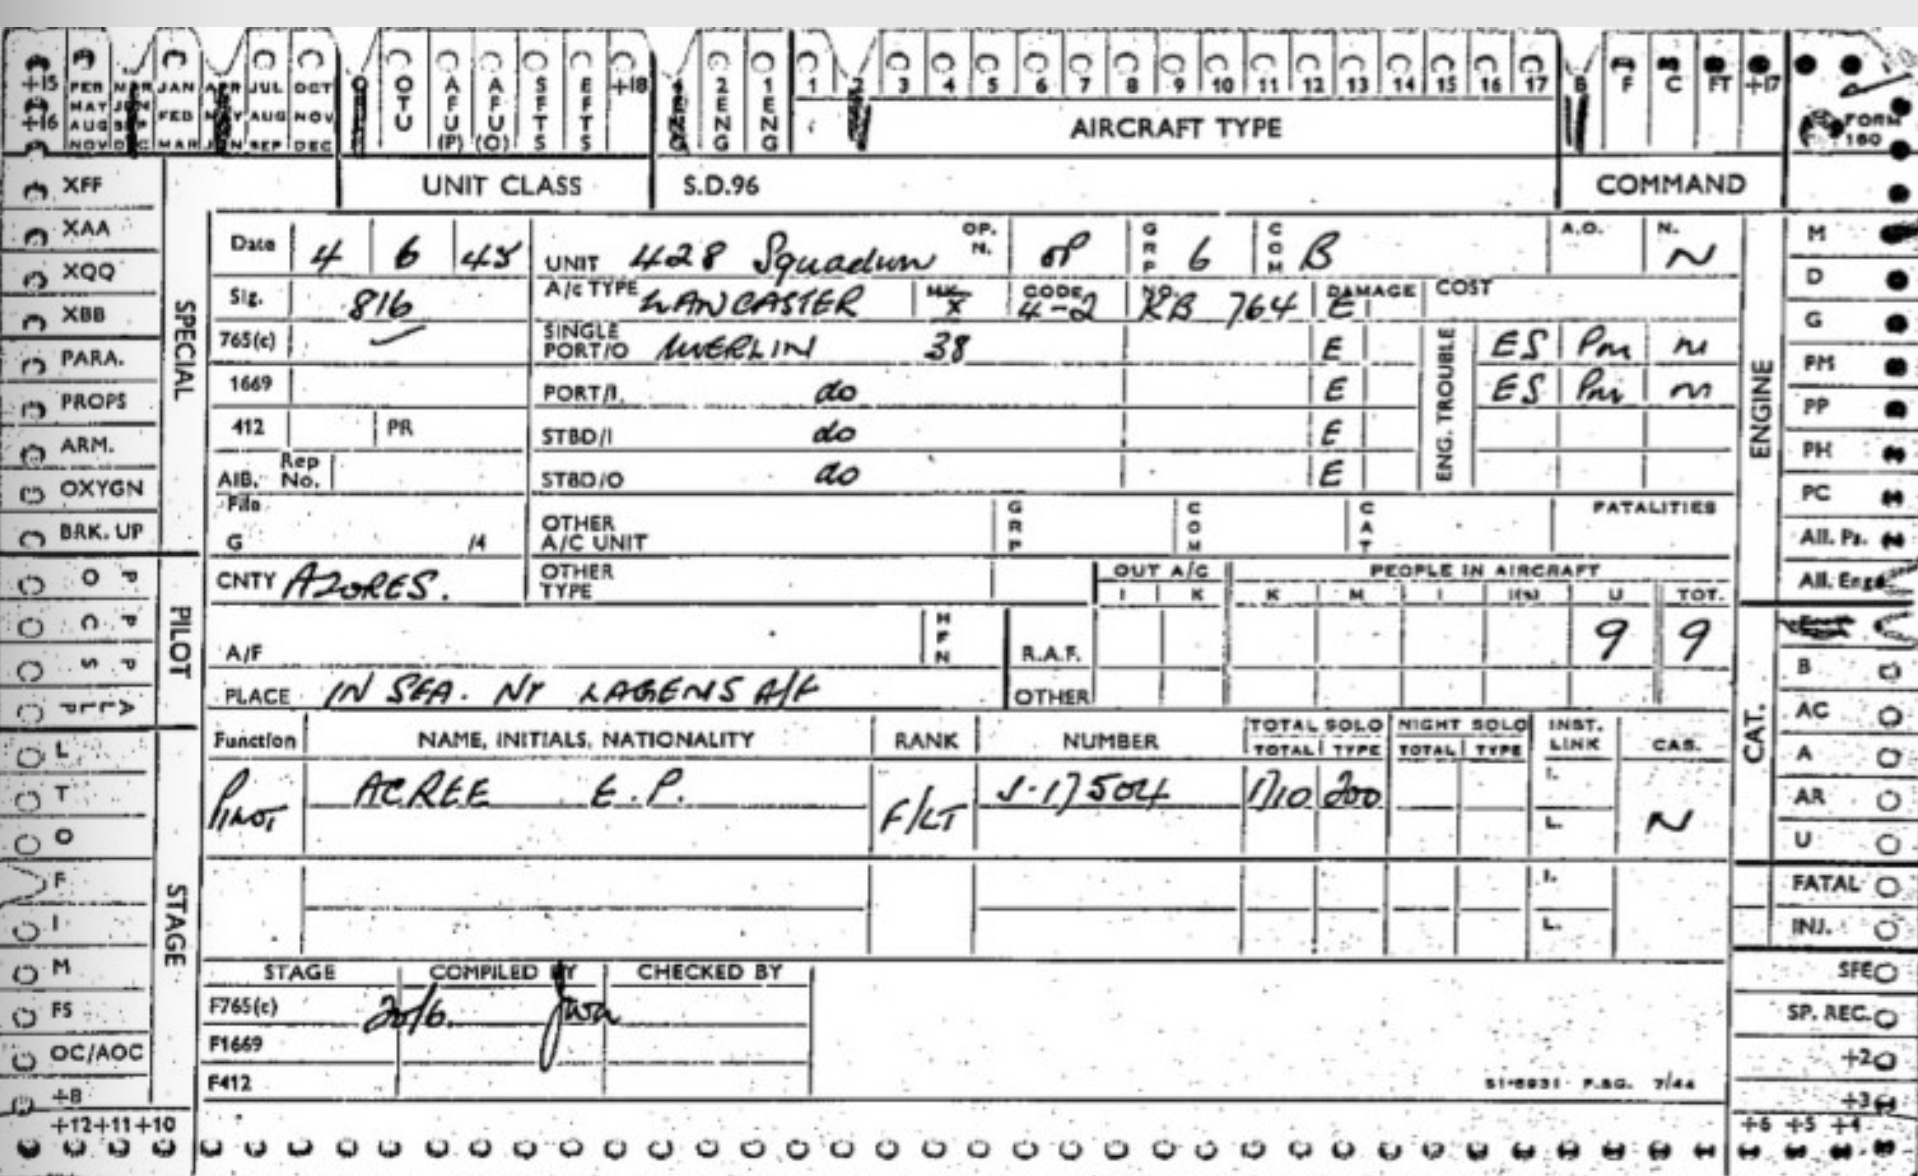 +15 FEB MAR JAN APR JUL OCT OTU AFU (P) AFU (O) SFTS EFTS +18 4ENG 2ENG 1ENG 1 2 3 4 5 6 7 8 9 10 11 12 13 14 15 16 17 B F C FT +17
+16 MAY JUN FEB MAY AUG NOV
AUG SEP
NOV DEC MAR JUN SEP DEC
AIRCRAFT TYPE
FORM 180
UNIT CLASS S.D.96 COMMAND
XFF
XAA
XQQ
XBB
PARA.
PROPS
ARM.
OXYGN
BRK. UP
SPECIAL
P O
P C
P S
ALL P
PILOT
L
T
O
F
I
M
FS
OC/AOC
+8
STAGE
+12+11+10
Date 4 6 45 UNIT 428 Squadron OP. N. OP GRP 6 COM B A.O. N. N
Sig. 816 A/c TYPE LANCASTER MK X CODE 4-2 NO. KB 764 DAMAGE E COST
765(c) SINGLE PORT/O MERLIN 38 E ENG. TROUBLE ES Pm M
1669 PORT/I. do E ES Pm M
412 PR STBD/I do E
AIB. Rep No. STBD/O do E
File G 14 OTHER A/C UNIT GRP COM CAT FATALITIES
CNTY AZORES. OTHER TYPE OUT A/C PEOPLE IN AIRCRAFT
I K K M I I(S) U TOT.
A/F HFN R.A.F. 9 9
PLACE IN SEA. NR LAGENS A/F OTHER
Function NAME, INITIALS, NATIONALITY RANK NUMBER TOTAL SOLO NIGHT SOLO INST. LINK CAS.
TOTAL TYPE TOTAL TYPE
Pilot ACREE E.P. F/LT J.17504 1710 200 I. L. N
I.
L.
STAGE COMPILED BY CHECKED BY
F765(c) 20/6.
F1669
F412
51-8931 F.&G. 7/44
ENGINE
M
D
G
PM
PP
PH
PC
All. Ps.
All. Engs
CAT.
B
AC
A
AR
U
FATAL
INJ.
SFE
SP. REC.
+2
+3
+6 +5 +4